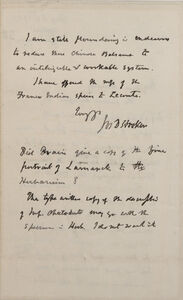 I am still floundering in endeavors
to reduce these Chinese Balsams to
an intelligible & workable system.
I have offered the whole of the
Franco Indian species to Lecomte.
Jos D Hooker
Did Drain give a copy of the fine
portrait of Lamarck to the
Herbarium?
The type written copy of the description
of Imp. may go with the
specimen in Herb. I do not want it